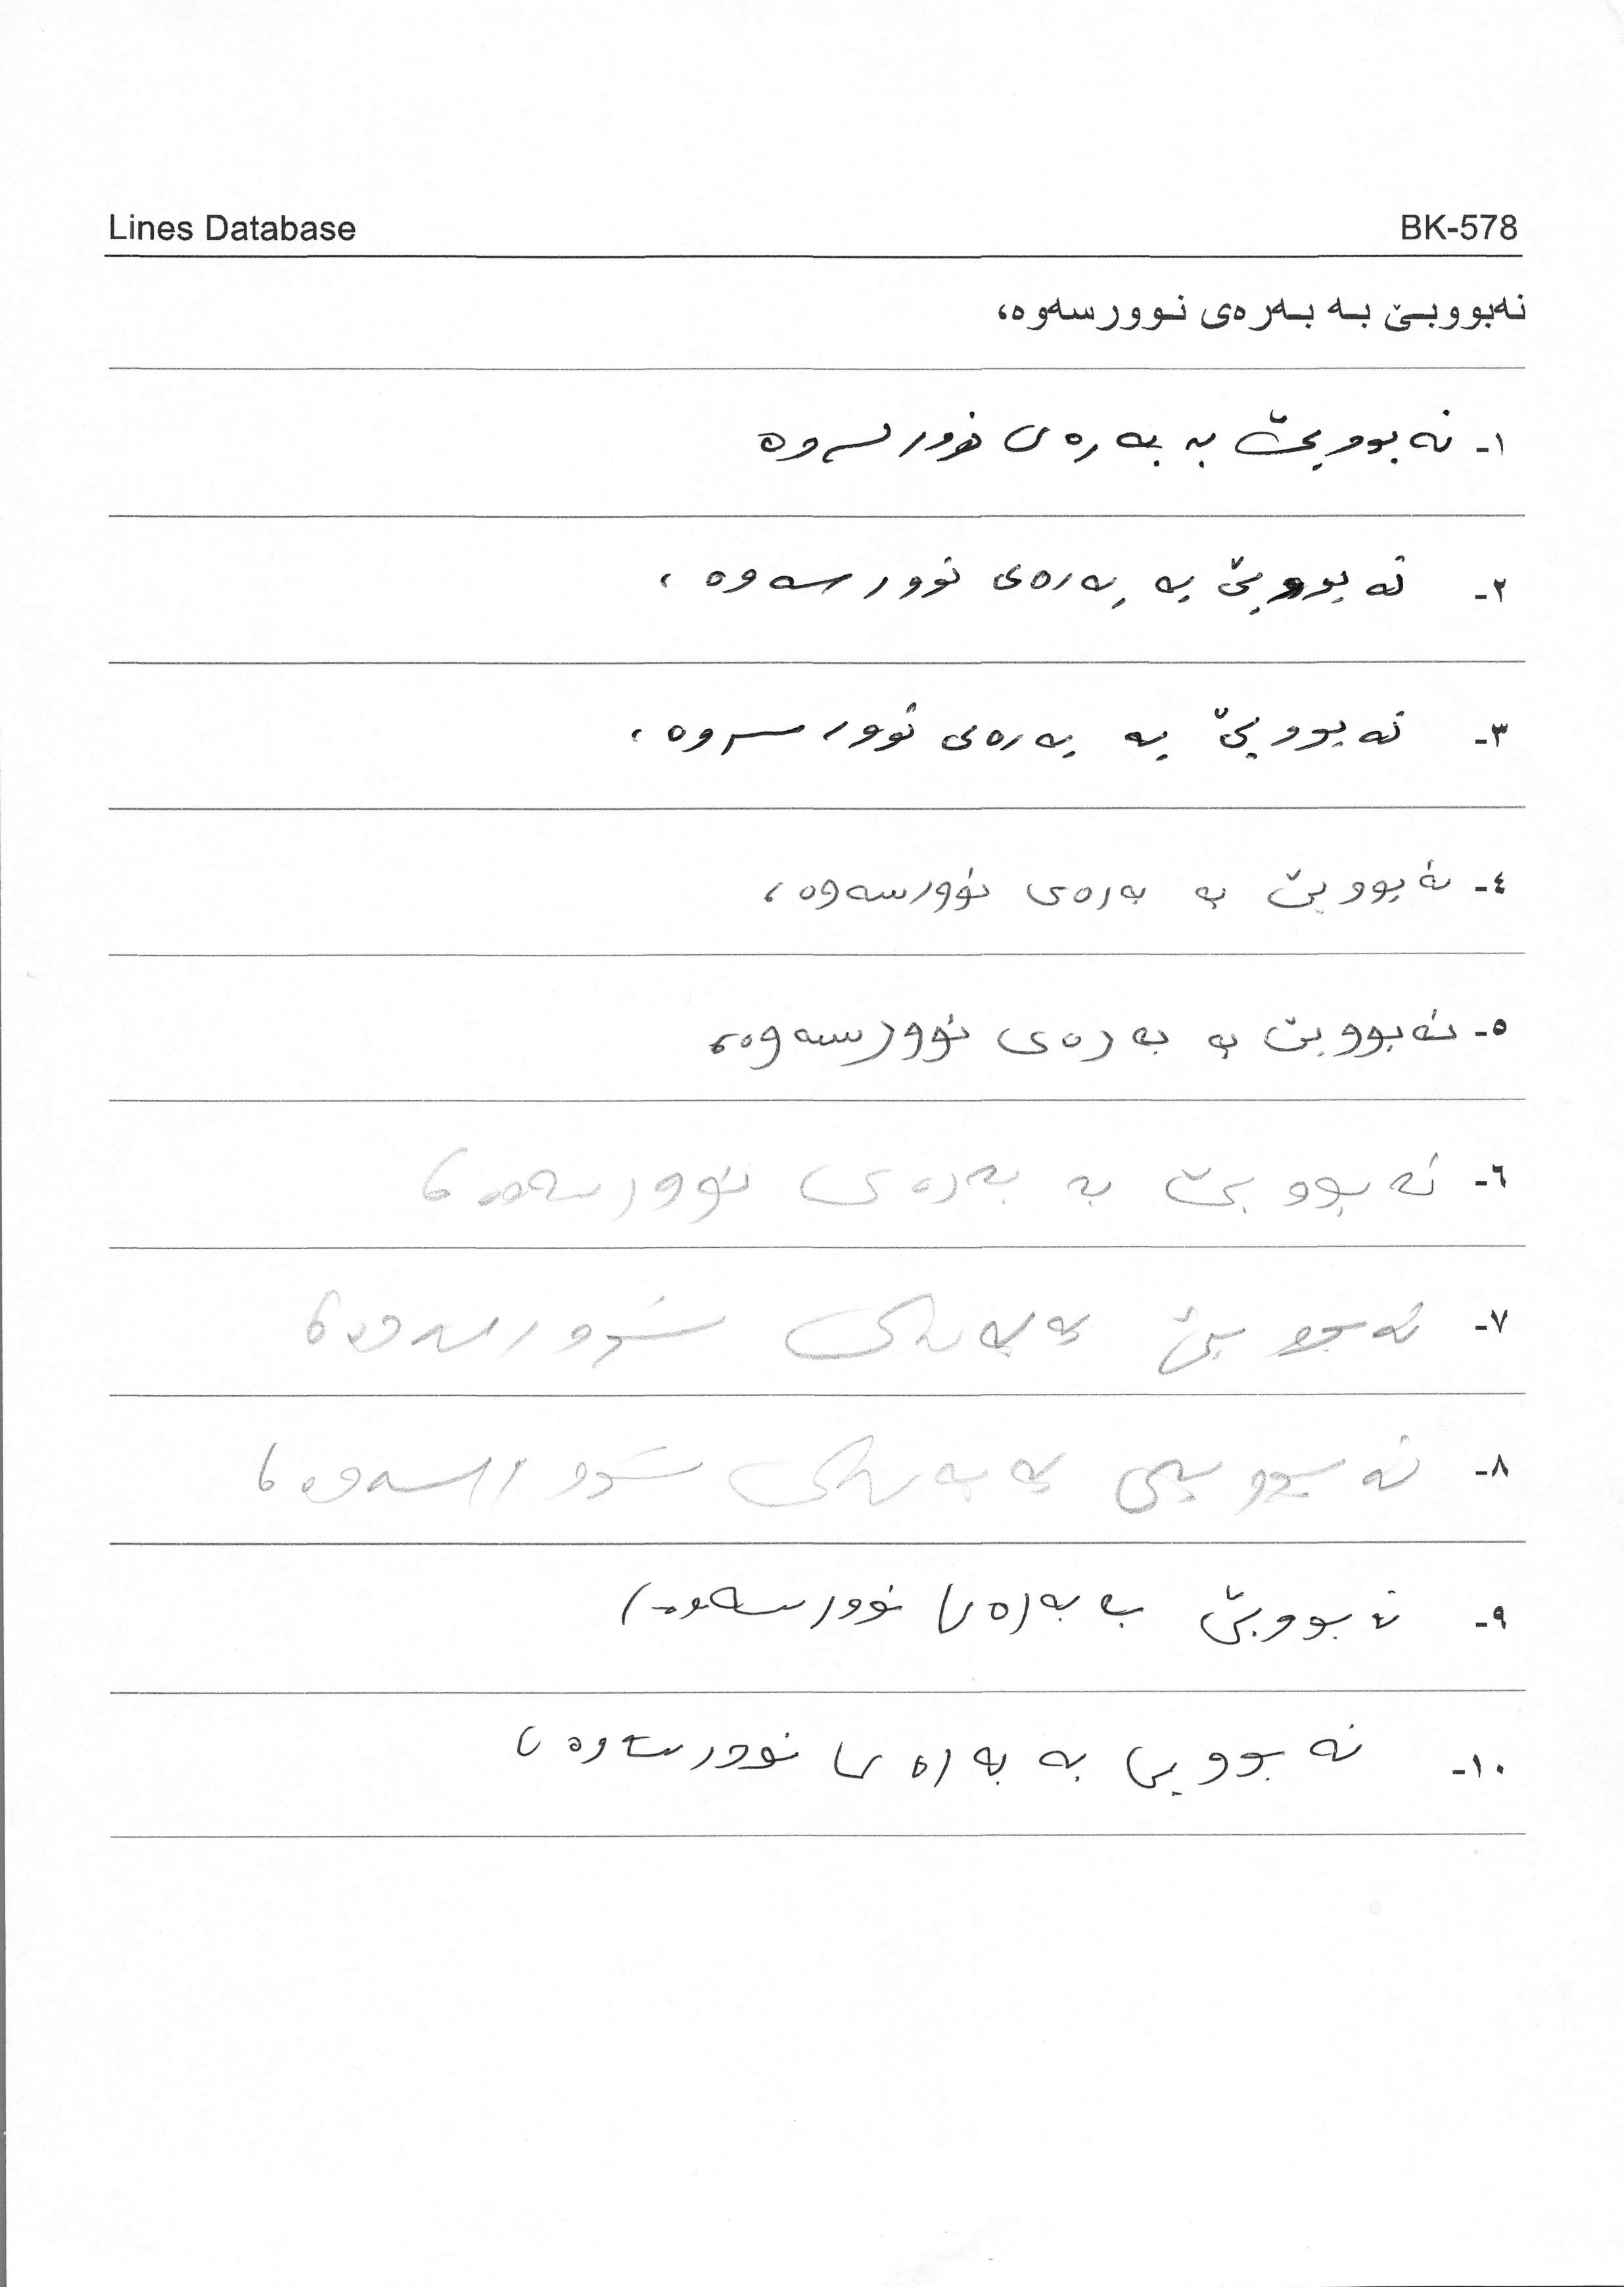 Lines Database BK-578
نەبووبێ بە بەرەی نوورسەوە،
١- نەبووبێ بە بەرەی نوورسەوە
٢- نەبووبێ بە بەرەی نوورسەوە،
٣- نەبووبێ بە بەرەی نوورسەوە،
٤- نەبووبێ بە بەرەی نوورسەوە،
٥- نەبووبێ بە بەرەی نوورسەوە،
٦- نەبووبێ بە بەرەی نوورسەوە،
٧- نەبووبێ بە بەرەی نوورسەوە،
٨- نەبووبێ بە بەرەی نوورسەوە،
٩- نەبووبێ بە بەرەی نوورسەوە،
١٠- نەبووبێ بە بەرەی نوورسەوە،